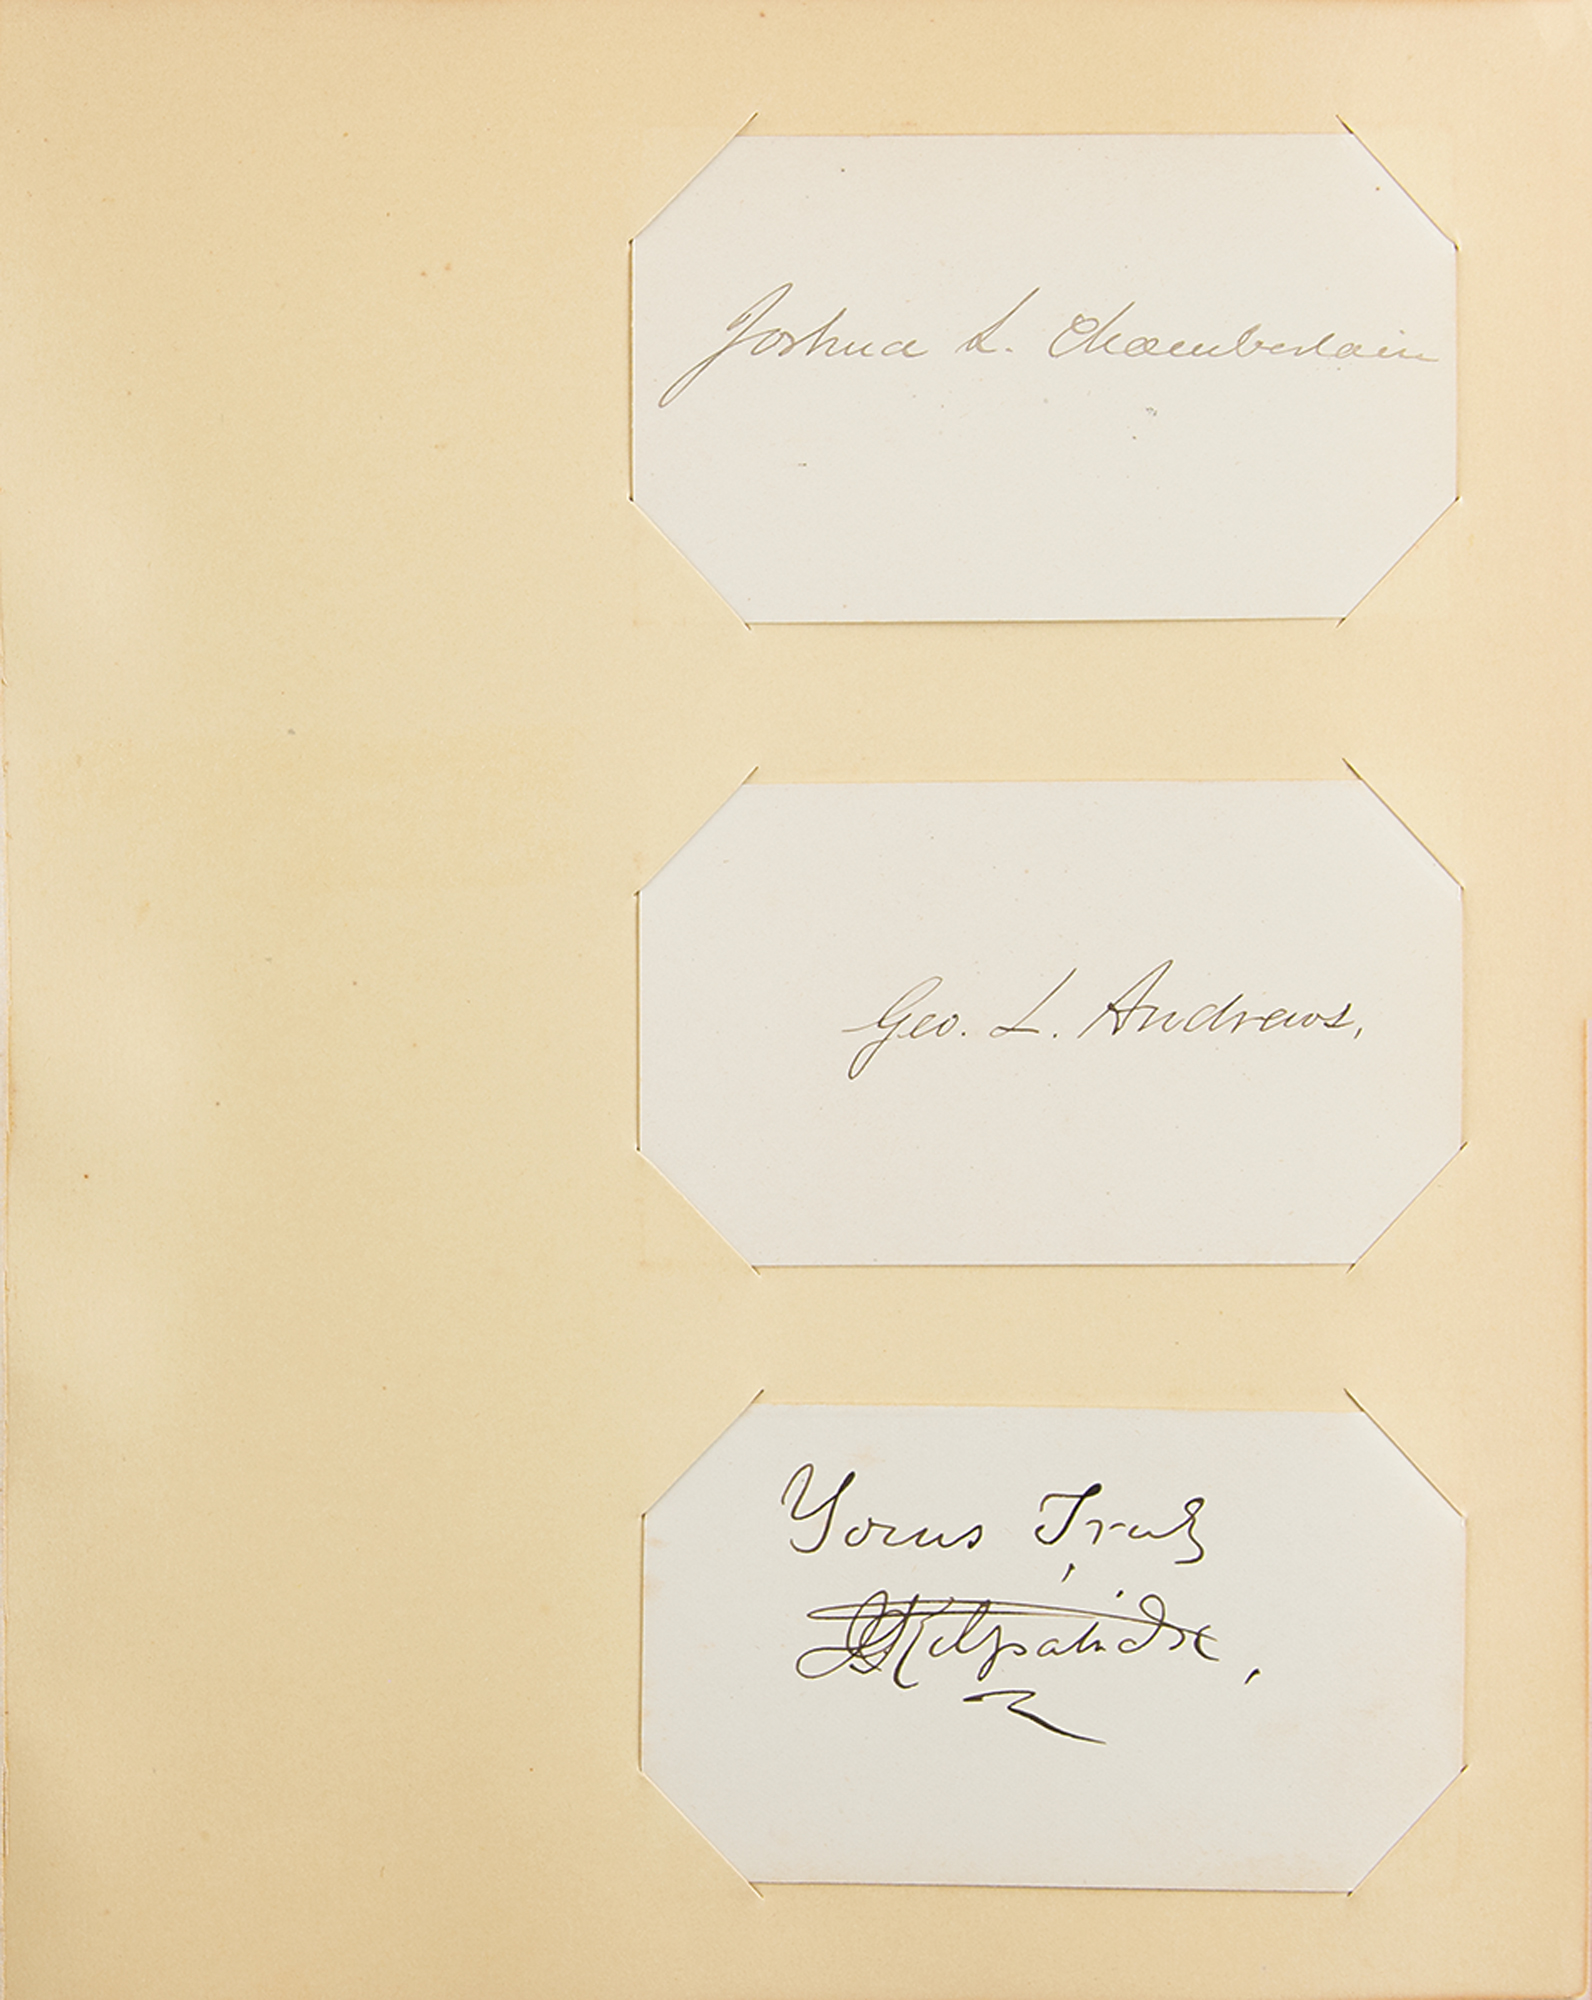 Joshua L. Chamberlain
Geo. L. Andrews,
Yours Truly
JKilpatrick,